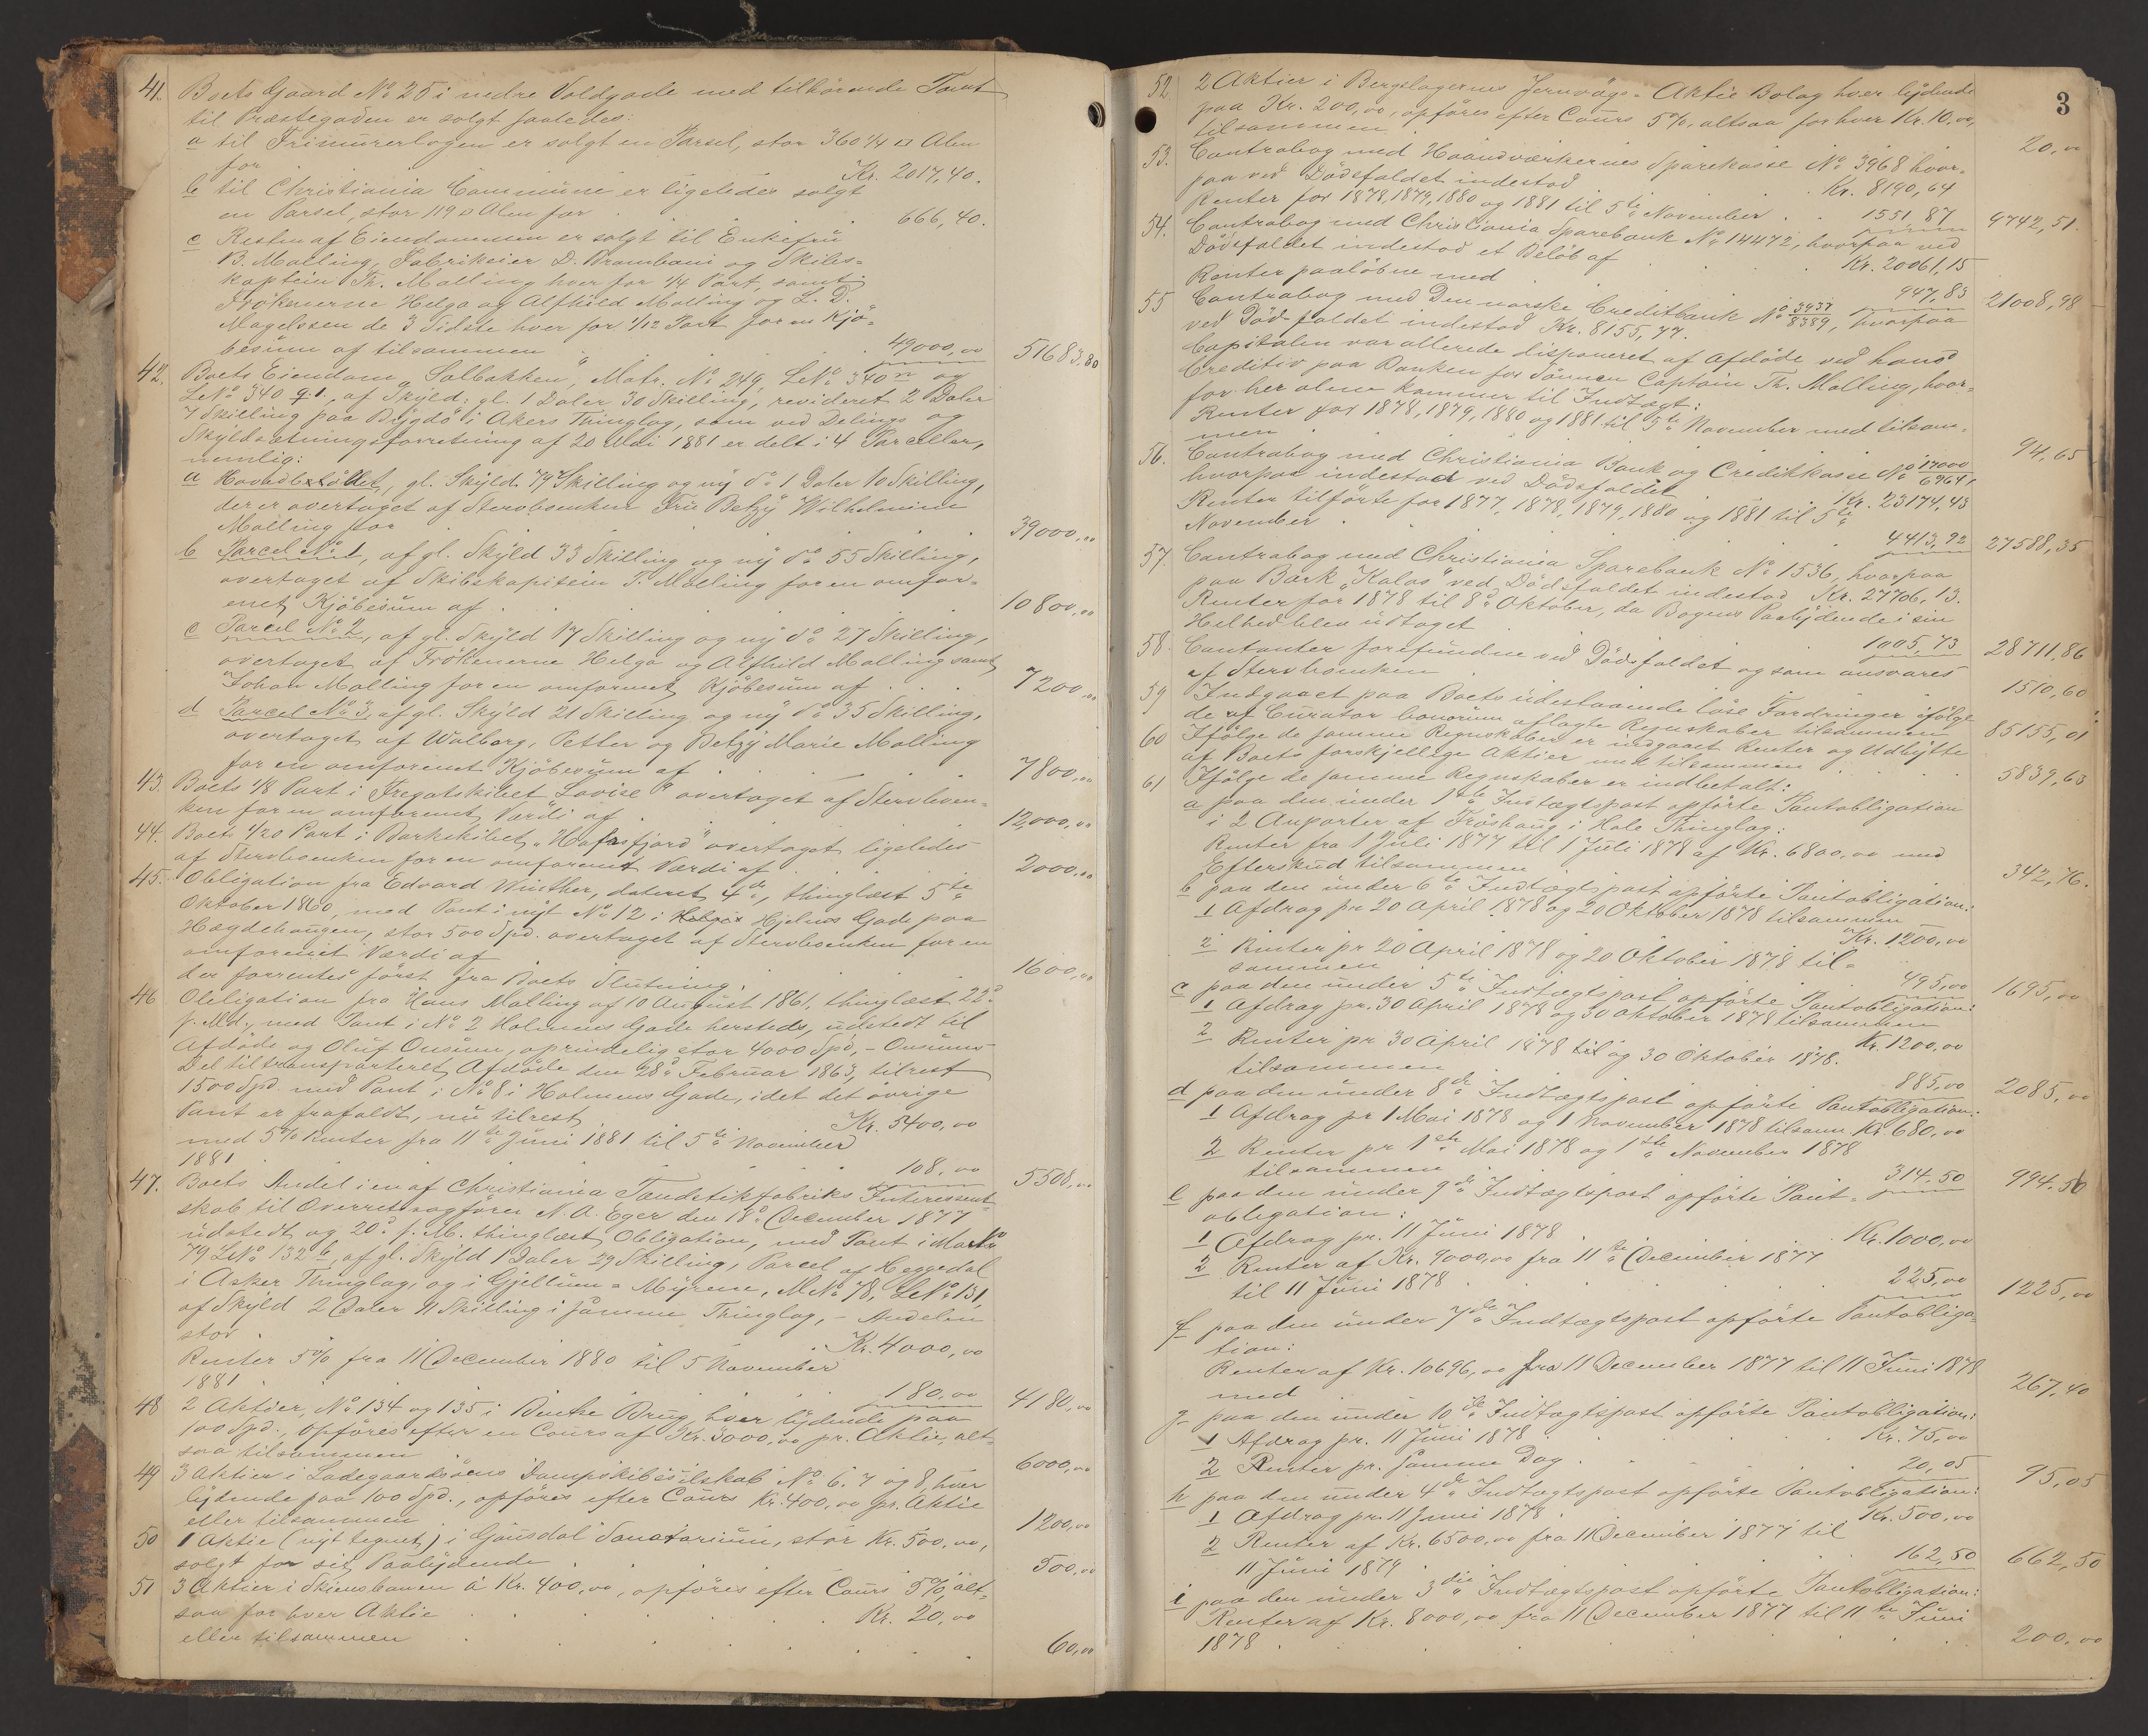 41. Boets Gaard No 25 i nedre Voldgade med tilhørende Tomt
til Præstegaden er solgt saaledes:
a til Frimurerlogen er solgt en Parsel, stor 360 1/4 □ Alen
for Kr. 2017,40.
b til Christiania Commune er ligeledes solgt
en Parsel, stor 119 □ Alen for . . . 666,40.
c Resten af Eiendommen er solgt til Enkefru
B. Malling, Fabrikeier D. Brambani og Skibs-
kaptein Th. Malling hver for 1/4 Part, samt
Frøkenerne Helga og Alfhild Malling og L. D.
Magelssen de 3 Sidste hver for 1/12 Part for en Kjø-
besum af tilsammen . . . 49000,00 51683,80
42. Boets Eiendom "Solbakken", Matr. No 249, LNo 340 n og
LNo 340 q.1., af Skyld: gl. 1 Daler 30 Skilling, revideret 2 Daler
7 Skilling paa Bygdø i Akers Thinglag, som ved Delings og
Skyldsætningsforretning af 20 Mai 1881 er delt i 4 Parceller,
nemlig:
a Hovedbøllet, gl. Skyld 79 Skilling og ny do 1 Daler 10 Skilling,
der er overtaget af Stervboenken Fru Betzy Wilhelmine
Malling for . . . 39000,00
b Parcel No 1, af gl. Skyld 33 Skilling og ny do 55 Skilling,
overtaget af Skibskaptein T. Malling for en omfor-
enet Kjøbesum af . . . 10800,00
c Parcel No 2, af gl. Skyld 17 Skilling og ny do 27 Skilling,
overtaget af Frøkenerne Helga og Alfhild Malling samt
Johan Malling for en omforenet Kjøbesum af . . . 7200,00
d Parcel No 3, af gl. Skyld 21 Skilling og ny do 35 Skilling,
overtaget af Walborg, Petter og Betzy Marie Malling
for en omforenet Kjøbesum af . . . 7800,00
43. Boets 1/8 Part i Fregatskibet "Lovise" overtaget af Stervboen-
ken for en omforenet Værdi af . . . 12,000,00
44. Boets 1/20 Part i Barkskibet "Hafrsfjord" overtaget ligeledes
af Stervboenken for en omforenet Værdi af . . . 2000,00
45. Obligation fra Edvard Winther, dateret 4de, thinglæst 5te
Oktober 1860, med Pant i nyt No 12 i Holgis Hjelms Gade paa
Hægdehaugen, stor 500 Spd. overtaget af Stervboenken for en
omforenet Værdi af . . . 1600,00
der forrentes først fra Boets Slutning.
46 Obligation fra Hans Malling af 10 August 1861, thinglæst 22d
f. Md., med Pant i No 2 Holmens Gade hersteds, udstedt til
Afdøde og Oluf Onsum, oprindelig stor 4000 Spd, – Onsums
Del tiltransporteret Afdøde den 28d Februar 1863, tilrest
1500 Spd med Pant i No 8 i Holmens Gade, idet det øvrige
Pant er frafaldt, nu tilrest . . . Kr. 5400,00
med 5% Renter fra 11te Juni 1881 til 5te November
1881 . . . 108,00 5508,00
47. Boets Andel i en af Christiania Tændstikfabriks Interessent-
skab til Overretssagfører N. A. Eger den 18d December 1877
udstedt og 20d f. M. thinglæst Obligation, med Pant i Mat No
79 LNo 132 b, af gl. Skyld 1 Daler 29 Skilling, Parcel af Heggedal
i Asker Thinglag, og i Gjellum-Myrene, MNo 78, LNo 131,
af Skyld 2 Daler 11 Skilling i samme Thinglag, – Andelen
stor . . . Kr. 4000,00
Renter 5% fra 11 December 1880 til 5 November
1881 . . . 180,00 4180,00
48 2 Aktier, No 134 og 135 i Bentse Brug, hver lydende paa
100 Spd., opføres efter en Cours af Kr. 3000,00 pr. Aktie, alt-
saa tilsammen . . . 6000,00
49 3 Aktier i Ladegaardsøens Dampskibsselskab No 6. 7 og 8, hver
lydende paa 100 Spd., opføres efter Cours Kr. 400,00 pr. Aktie
eller tilsammen . . . 1200,00
50 1 Aktie (nyt tegnet) i Gausdal Sanatorium, stor Kr. 500,00,
solgt for sit Paalydende . . . 500,00
51 3 Aktier i Skiensbanen à Kr. 400,00, opføres efter Cours 5%, alt-
saa for hver Aktie . . . Kr. 20,00
eller tilsammen . . . 60,00
3
52 2 Aktier i Bergslagernes Jernvägs-Aktie Bolag hver lydende
paa Kr. 200,00, opføres efter Cours 5%, altsaa for hver Kr. 10,00,
tilsammen . . . 20,00
53. Contrabog med Haandværkernes Sparekasse No 3968 hvor-
paa ved Dødsfaldet indestod . . . Kr. 8190,64
Renter for 1878, 1879, 1880 og 1881 til 5te November . . 1551,87 9742,51.
54. Contrabog med Christiania Sparebank No 14472, hvorpaa ved
Dødsfaldet indestod et Beløb af . . . Kr. 20061,15
Renter paaløbne med . . . 947,83 21008,98
55 Contrabog med Den norske Creditbank No 3937/8389, hvorpaa
ved Dødsfaldet indestod Kr. 8155,77.
Capitalen var allerede disponeret af Afdøde ved hans
Creditiv paa Banken for Sønnen Captain Th. Malling, hvor-
for her alene kommer til Indtægt:
Renter for 1878, 1879, 1880 og 1881 til 5te November med tilsam-
men . . . 94,65
56. Contrabog med Christiania Bank og Creditkasse No 17000/69641
hvorpaa indestod ved Dødsfaldet . . . Kr. 23174,43
Renter tilførte for 1877, 1878, 1879, 1880 og 1881 til 5te
November . . . 4413,92 27588,35
57. Contrabog med Christiania Sparebank No 1536, hvorpaa
paa Bark "Kalos" ved Dødsfaldet indestod Kr. 27706,13.
Renter for 1878 til 8d Oktober, da Bogens Paalydende i sin
Helhed blev udtaget . . . 1005,73 28711,86
58. Contanter forefundne ved Dødsfaldet og som ansvares
af Stervboenken . . . 1510,60
59 Indgaaet paa Boets udestaaende løse Fordringer ifølge
de af Curator bonorum aflagte Regnskaber tilsammen 85155,01
60 Ifølge de samme Regnskaber er indgaaet Renter og Udbytte
af Boets forskjellige Aktier med tilsammen . . . 5839,63
61 Ifølge de samme Regnskaber er indbetalt:
a paa den under 1ste Indtægtspost opførte Pantobligation
i 2 Anparter af Frøshaug i Hole Thinglag:
Renter fra 1 Juli 1877 til 1 Juli 1878 af Kr. 6800,00 med
Efterskud tilsammen . . . 342,76.
b paa den under 6te Indtægtspost opførte Pantobligation:
1 Afdrag pr 20 April 1878 og 20 Oktober 1878 tilsammen
Kr. 1200,00
2 Renter pr 20 April 1878 og 20 Oktober 1878 til-
sammen . . . 495,00 1695,00
c paa den under 5te Indtægtspost opførte Pantobligation:
1 Afdrag pr. 30 April 1878 og 30 Oktober 1878 tilsammen
Kr. 1200,00
2 Renter pr 30 April 1878 til og 30 Oktober 1878.
tilsammen . . . 885,00 2085,00
d paa den under 8de Indtægtspost opførte Pantobligation:
1 Afdrag pr 1 Mai 1878 og 1 November 1878 tilsam. Kr. 680,00
2 Renter pr 1ste Mai 1878 og 1ste November 1878
tilsammen . . . 314.50 994.50
e paa den under 9de Indtægtspost opførte Pant-
obligation:
1 Afdrag pr. 11 Juni 1878 . . . Kr. 1000,00
2 Renter af Kr. 9000,00 fra 11te December 1877
til 11 Juni 1878 . . . 225,00 1225,00
f paa den under 7de Indtægtspost opførte Pantobliga-
tion:
Renter af Kr. 10696,00 fra 11 December 1877 til 11 Juni 1878
med . . . 267,40
g paa den under 10de Indtægtspost opførte Pantobligation:
1 Afdrag pr. 11 Juni 1878 . . . Kr. 75,00
2 Renter pr. samme Dag . . . 20,05 95,05
h paa den under 4de Indtægtspost opførte Pantobligation:
1 Afdrag pr. 11 Juni 1878 . . . Kr. 500,00
2 Renter af Kr. 6500,00 fra 11 December 1877 til
11 Juni 1879 . . . 162,50 662,50
i paa den under 3die Indtægtspost opførte Pantobligation:
Renter af Kr. 8000,00 fra 11 December 1877 til 11te Juni
1878 . . . 200,00